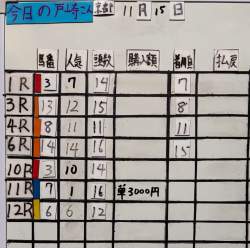 今日の戸崎さん 東京 11月15日
馬番 人気 頭数 購入額 着順 払戻
1R 3 7 14 7
3R 13 12 15 8
4R 8 11 11 11
6R 14 14 16 15
10R 3 10 14
11R 7 1 16 単3000円
12R 6 6 12